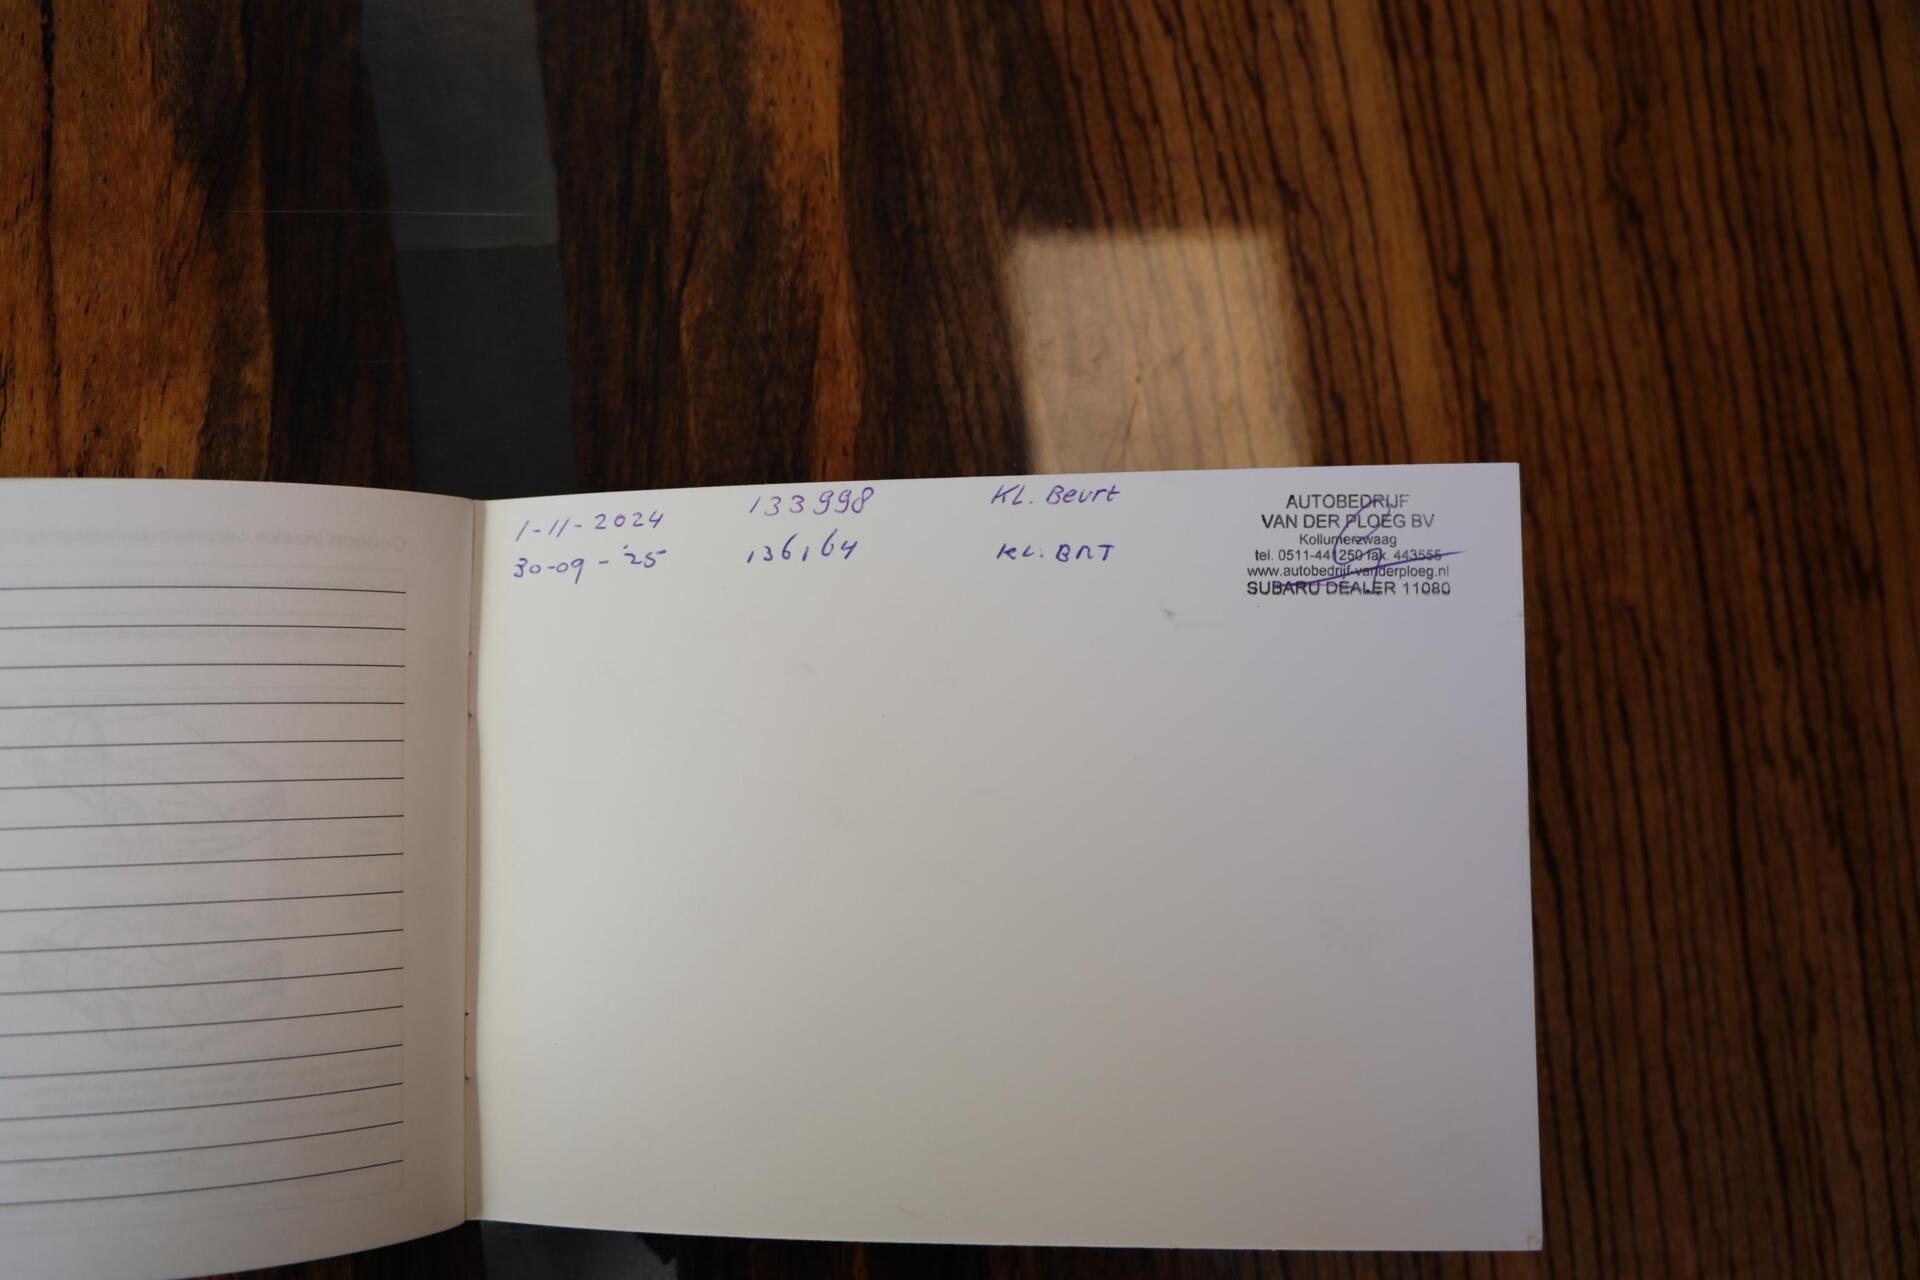 1-11-2024 133998 KL. Beurt
30-09-'25 136164 KL. BRT
AUTOBEDRIJF
VAN DER PLOEG BV
Kollumerzwaag
tel. 0511-441250 fax. 443555
www.autobedrijf-vanderploeg.nl
SUBARU DEALER 11080